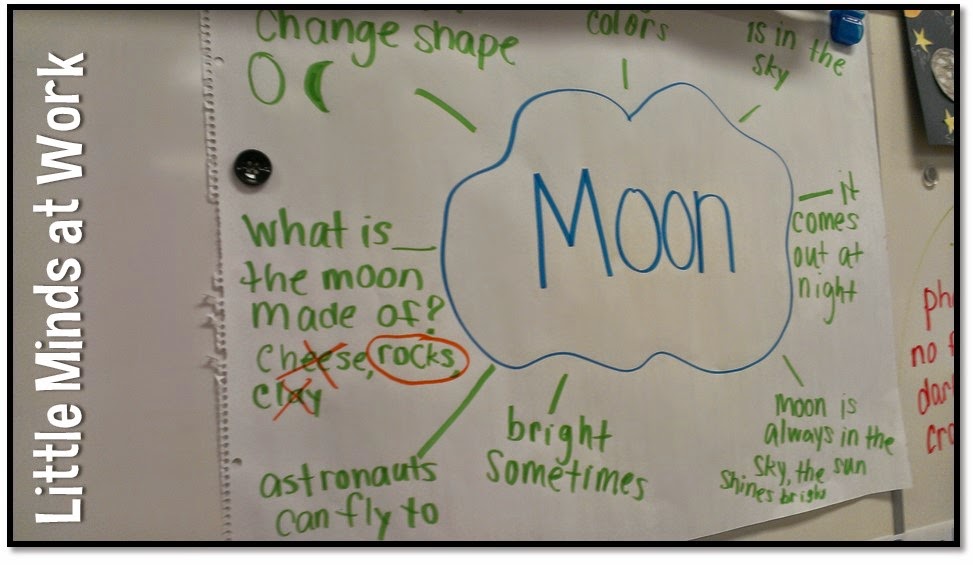 Little Minds at Work
Change shape
colors
is in the
sky
Moon
it
comes
out at
night
What is
the moon
made of?
Cheese, rocks,
clay
astronauts
can fly to
bright
Sometimes
Moon is
always in the
sky, the sun
shines bright
no